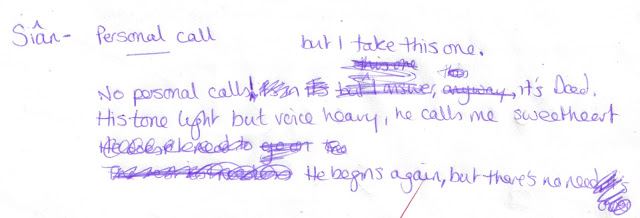 Siân - Personal call
but I take this one.
this one
No personal calls, but I answer, anyway, it's Dad.
His tone light but voice heavy, he calls me sweetheart
He begins again, but there's no need